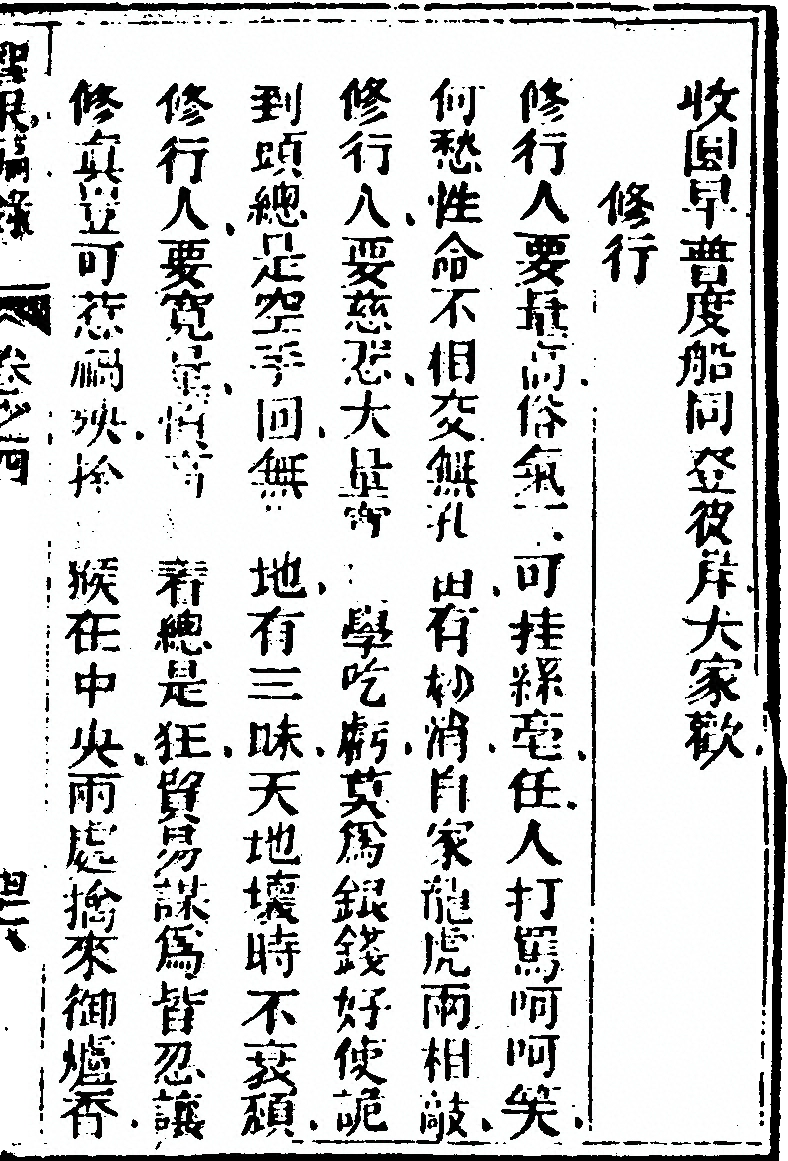 收圓早普度船同登彼岸大家歡
修行
修行人要量高俗氣 可挂絲毫任人打罵呵呵笑
何愁性命不相交無孔 由有妙消自家龍虎兩相敲
修行人要慈悲大量 學吃虧莫為銀錢好使詭
到頭總是空手回無 地有三昧天地壞時不衰頹
修行人要寬量 著總是狂貿易謀為皆忍讓
修真豈可惹禍殃 猴在中央兩處擒來御爐香
卷之四